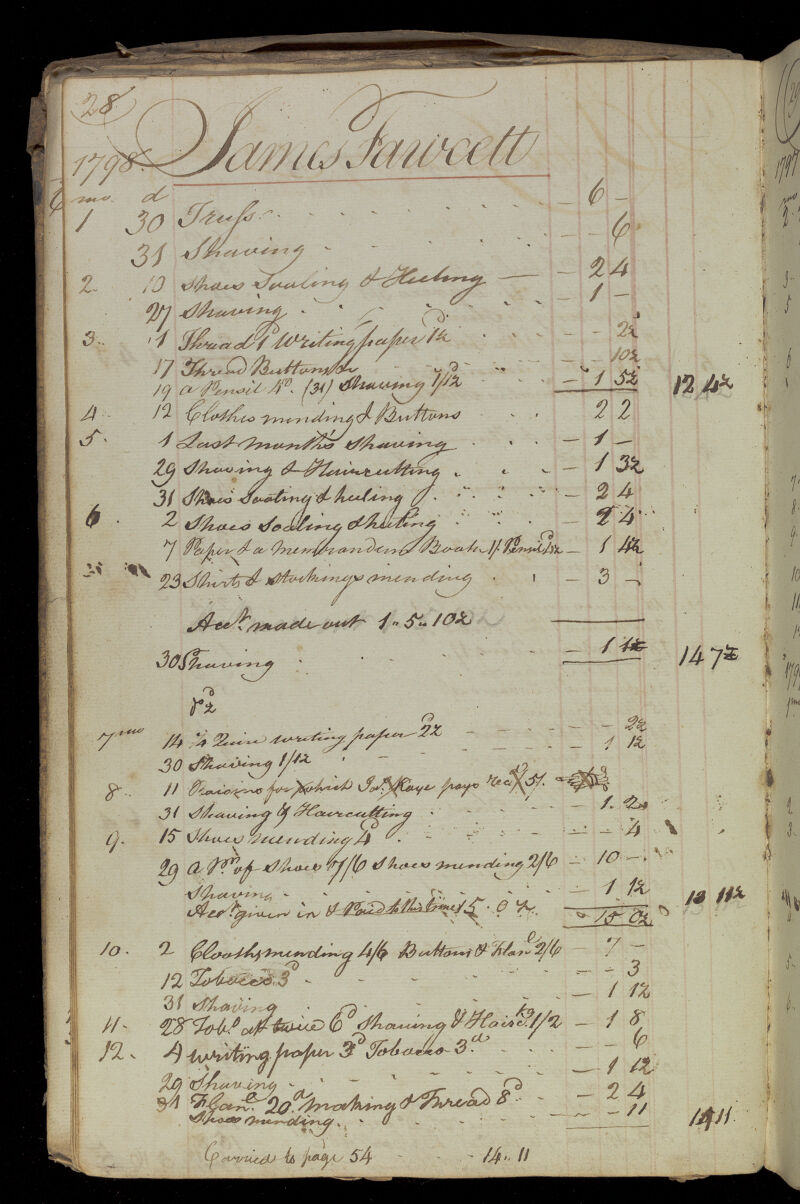 28
James Fawcett
1798
mo. d
1 30 Truss - 6 -
31 Shaving - - 6
2 10 Shoes Soaling & Heeling - 2 4
27 Shaving - 1 -
3 1 Thread 1d Writing paper 1½ - - 2½
17 Thread Buttons & - - 10½
19 a Pensil 4d. (31) Shaving 1/1½ - 1 5½ 12 4½
4 12 Clothes mending & Buttons 2 2
5 1 Last month's Shaving - 1 -
29 Shaving & Haircutting - 1 3½
31 Shoes Soaling & heeling - 2 4
6 2 Shoes Soaling & heeling - 2 4
7 Paper & a Memorandum Book 1/. Pensil - 1 4½
23 Shirts & stockings mending - 3 -
Acct. made out 1 " 5 " 10½
30 Shaving - 1 1½ 14 7½
7 mo 14 ¼ Quire writing paper 2½ - - 2½
30 Shaving 1/1½ - 1 1½
8 11 for which Jas. Kaye pays 5/.
31 Shaving & Haircutting - 1 2
9 15 Shoes mending 4d - - 4
29 a Pr. of Shoes 7/6 Shoes mending 2/6 - 10 -
Shaving - 1 1½ 13 11½
Acct. given in & Paid to this time 15 0½ 15 0½
10 2 Cloaths mending 4/6 Buttons & Flanl. 2/6 - 7 -
12 Tobacco 3d - - 3
31 Shaving - 1 1½
11 28 Tobo. at twice 6d Shaving & Hairc.kg 1/2 - 1 8
12 4 writing paper 3d Tobacco 3d - - 6
29 Shaving - 1 1½
31 Flanl. 20d making & Thread 8d - 2 4
Shoes mending - - 11 14 11
Carried to page 54 14 " 11